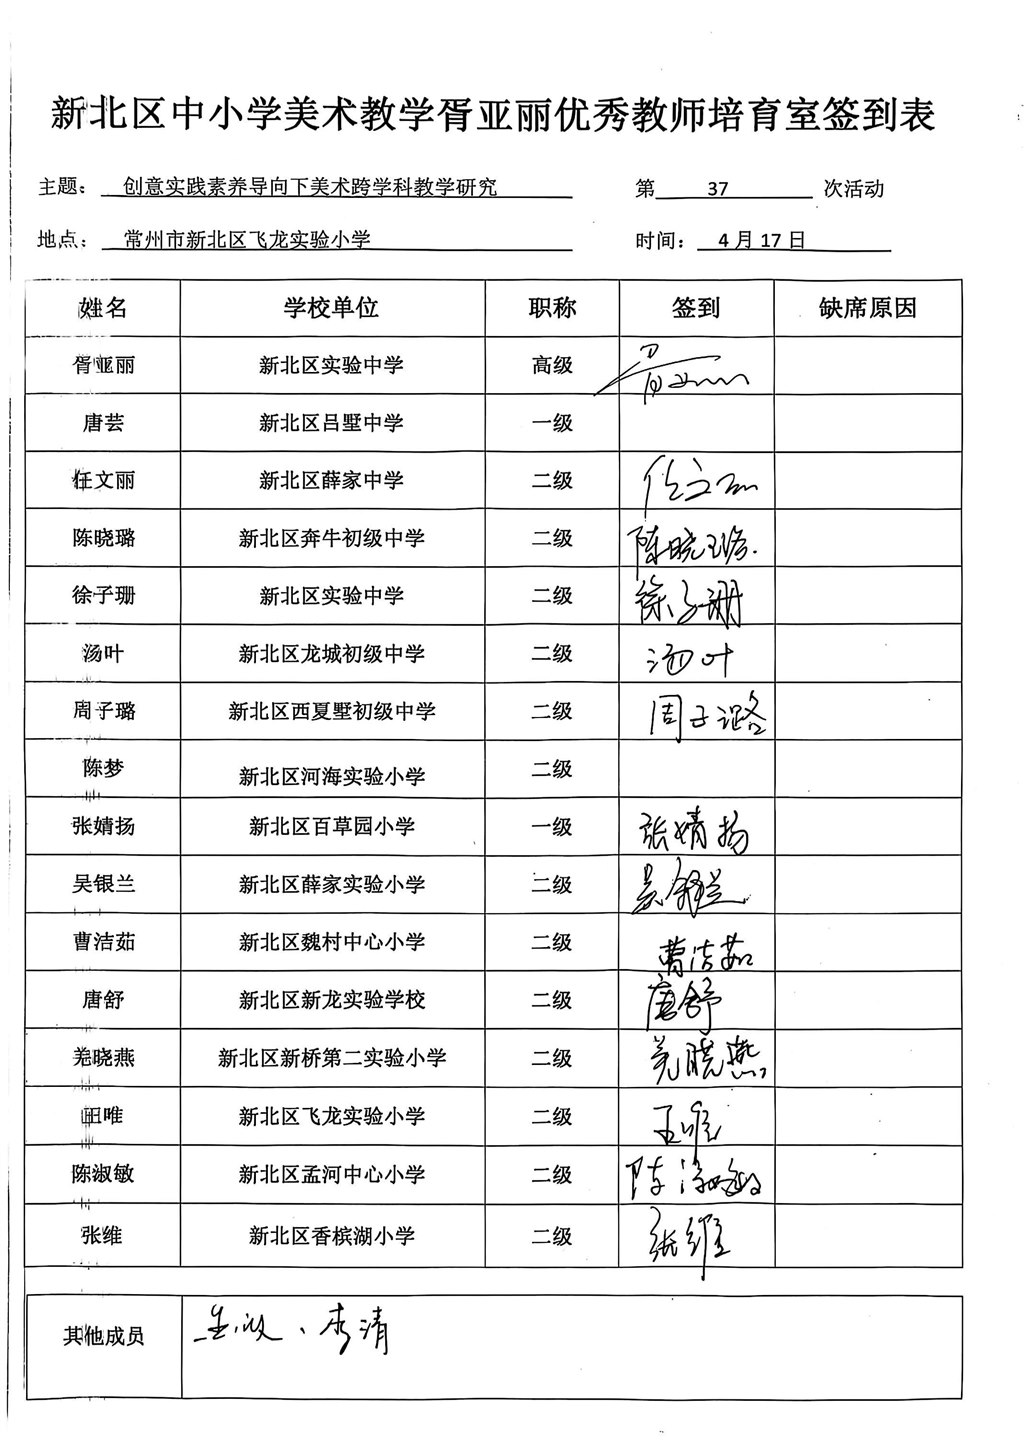 新北区中小学美术教学胥亚丽优秀教师培育室签到表
主题： 创意实践素养导向下美术跨学科教学研究 第 37 次活动
地点： 常州市新北区飞龙实验小学 时间： 4 月 17 日
姓名 学校单位 职称 签到 缺席原因
胥亚丽 新北区实验中学 高级 胥亚丽
唐芸 新北区吕墅中学 一级
任文丽 新北区薛家中学 二级 任文丽
陈晓璐 新北区奔牛初级中学 二级 陈晓璐
徐子珊 新北区实验中学 二级 徐子珊
汤叶 新北区龙城初级中学 二级 汤叶
周子璐 新北区西夏墅初级中学 二级 周子璐
陈梦 新北区河海实验小学 二级
张婧扬 新北区百草园小学 一级 张婧扬
吴银兰 新北区薛家实验小学 二级 吴银兰
曹洁茹 新北区魏村中心小学 二级 曹洁茹
唐舒 新北区新龙实验学校 二级 唐舒
羌晓燕 新北区新桥第二实验小学 二级 羌晓燕
王唯 新北区飞龙实验小学 二级 王唯
陈淑敏 新北区孟河中心小学 二级 陈淑敏
张维 新北区香槟湖小学 二级 张维
其他成员 李清